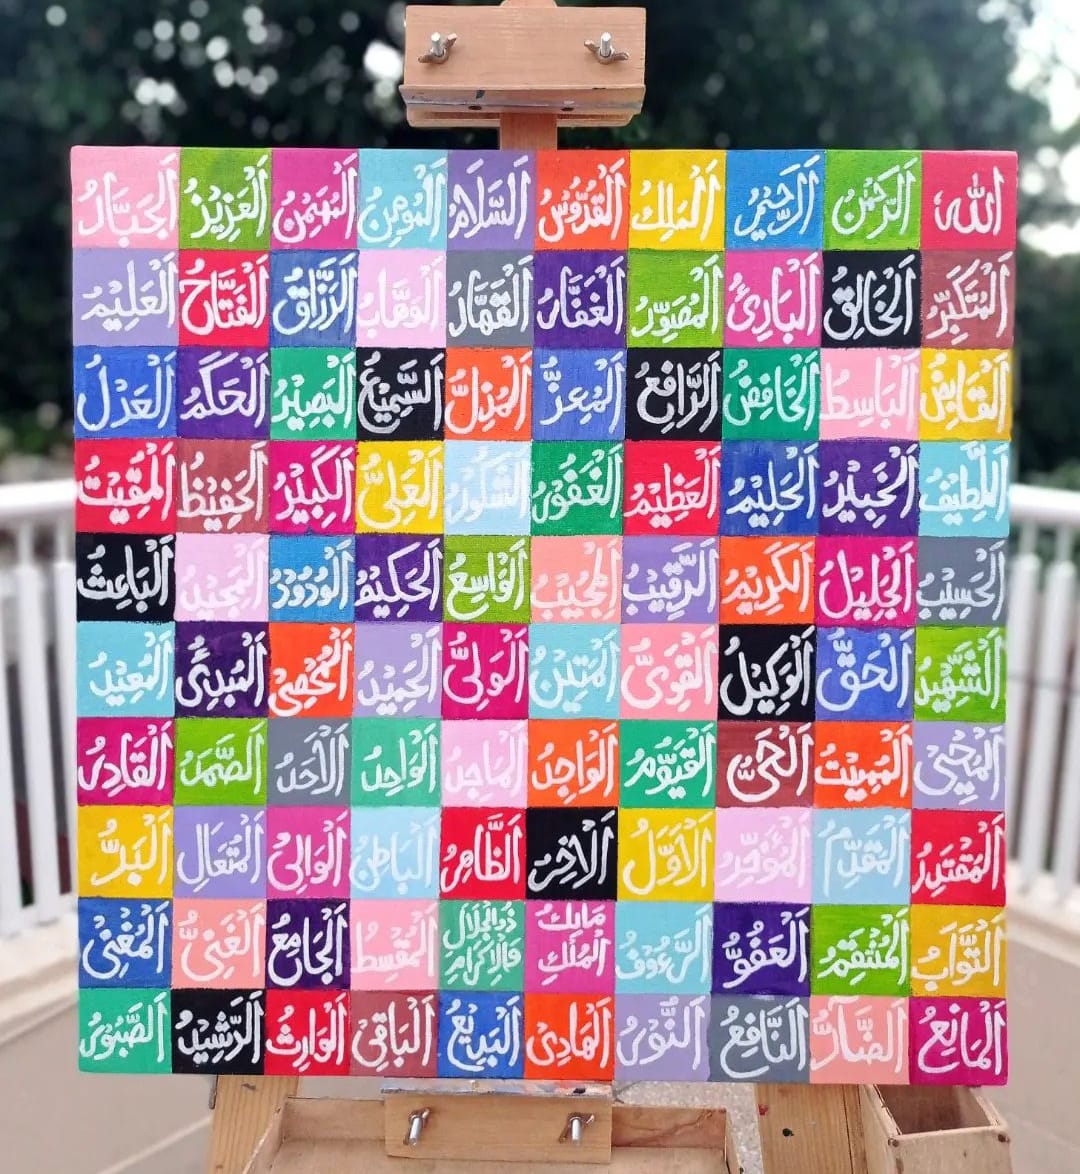 اَللّٰه اَلرَّحْمٰنُ اَلرَّحِيْمُ اَلْمَلِكُ اَلْقُدُّوْسُ اَلسَّلَامُ اَلْمُؤْمِنُ اَلْمُهَيْمِنُ اَلْعَزِيْزُ اَلْجَبَّارُ
اَلْمُتَكَبِّرُ اَلْخَالِقُ اَلْبَارِئُ اَلْمُصَوِّرُ اَلْغَفَّارُ اَلْقَهَّارُ اَلْوَهَّابُ اَلرَّزَّاقُ اَلْفَتَّاحُ اَلْعَلِيْمُ
اَلْقَابِضُ اَلْبَاسِطُ اَلْخَافِضُ اَلرَّافِعُ اَلْمُعِزُّ اَلْمُذِلُّ اَلسَّمِيْعُ اَلْبَصِيْرُ اَلْحَكَمُ اَلْعَدْلُ
اَللَّطِيْفُ اَلْخَبِيْرُ اَلْحَلِيْمُ اَلْعَظِيْمُ اَلْغَفُوْرُ اَلشَّكُوْرُ اَلْعَلِىُّ اَلْكَبِيْرُ اَلْحَفِيْظُ اَلْمُقِيْتُ
اَلْحَسِيْبُ اَلْجَلِيْلُ اَلْكَرِيْمُ اَلرَّقِيْبُ اَلْمُجِيْبُ اَلْوَاسِعُ اَلْحَكِيْمُ اَلْوَدُوْدُ اَلْمَجِيْدُ اَلْبَاعِثُ
اَلشَّهِيْدُ اَلْحَقُّ اَلْوَكِيْلُ اَلْقَوِىُّ اَلْمَتِيْنُ اَلْوَلِىُّ اَلْحَمِيْدُ اَلْمُحْصِىْ اَلْمُبْدِئُ اَلْمُعِيْدُ
اَلْمُحْيِىْ اَلْمُمِيْتُ اَلْحَىُّ اَلْقَيُّوْمُ اَلْوَاجِدُ اَلْمَاجِدُ اَلْوَاحِدُ اَلْاَحَدُ اَلصَّمَدُ اَلْقَادِرُ
اَلْمُقْتَدِرُ اَلْمُقَدِّمُ اَلْمُؤَخِّرُ اَلْاَوَّلُ اَلْاٰخِرُ اَلظَّاهِرُ اَلْبَاطِنُ اَلْوَالِىْ اَلْمُتَعَالِ اَلْبَرُّ
اَلتَّوَّابُ اَلْمُنْتَقِمُ اَلْعَفُوُّ اَلرَّءُوْفُ مَالِكُ الْمُلْكِ ذُوالْجَلَالِ وَالْاِكْرَامِ اَلْمُقْسِطُ اَلْجَامِعُ اَلْغَنِىُّ اَلْمُغْنِىْ
اَلْمَانِعُ اَلضَّآرُّ اَلنَّافِعُ اَلنُّوْرُ اَلْهَادِىْ اَلْبَدِيْعُ اَلْبَاقِىْ اَلْوَارِثُ اَلرَّشِيْدُ اَلصَّبُوْرُ